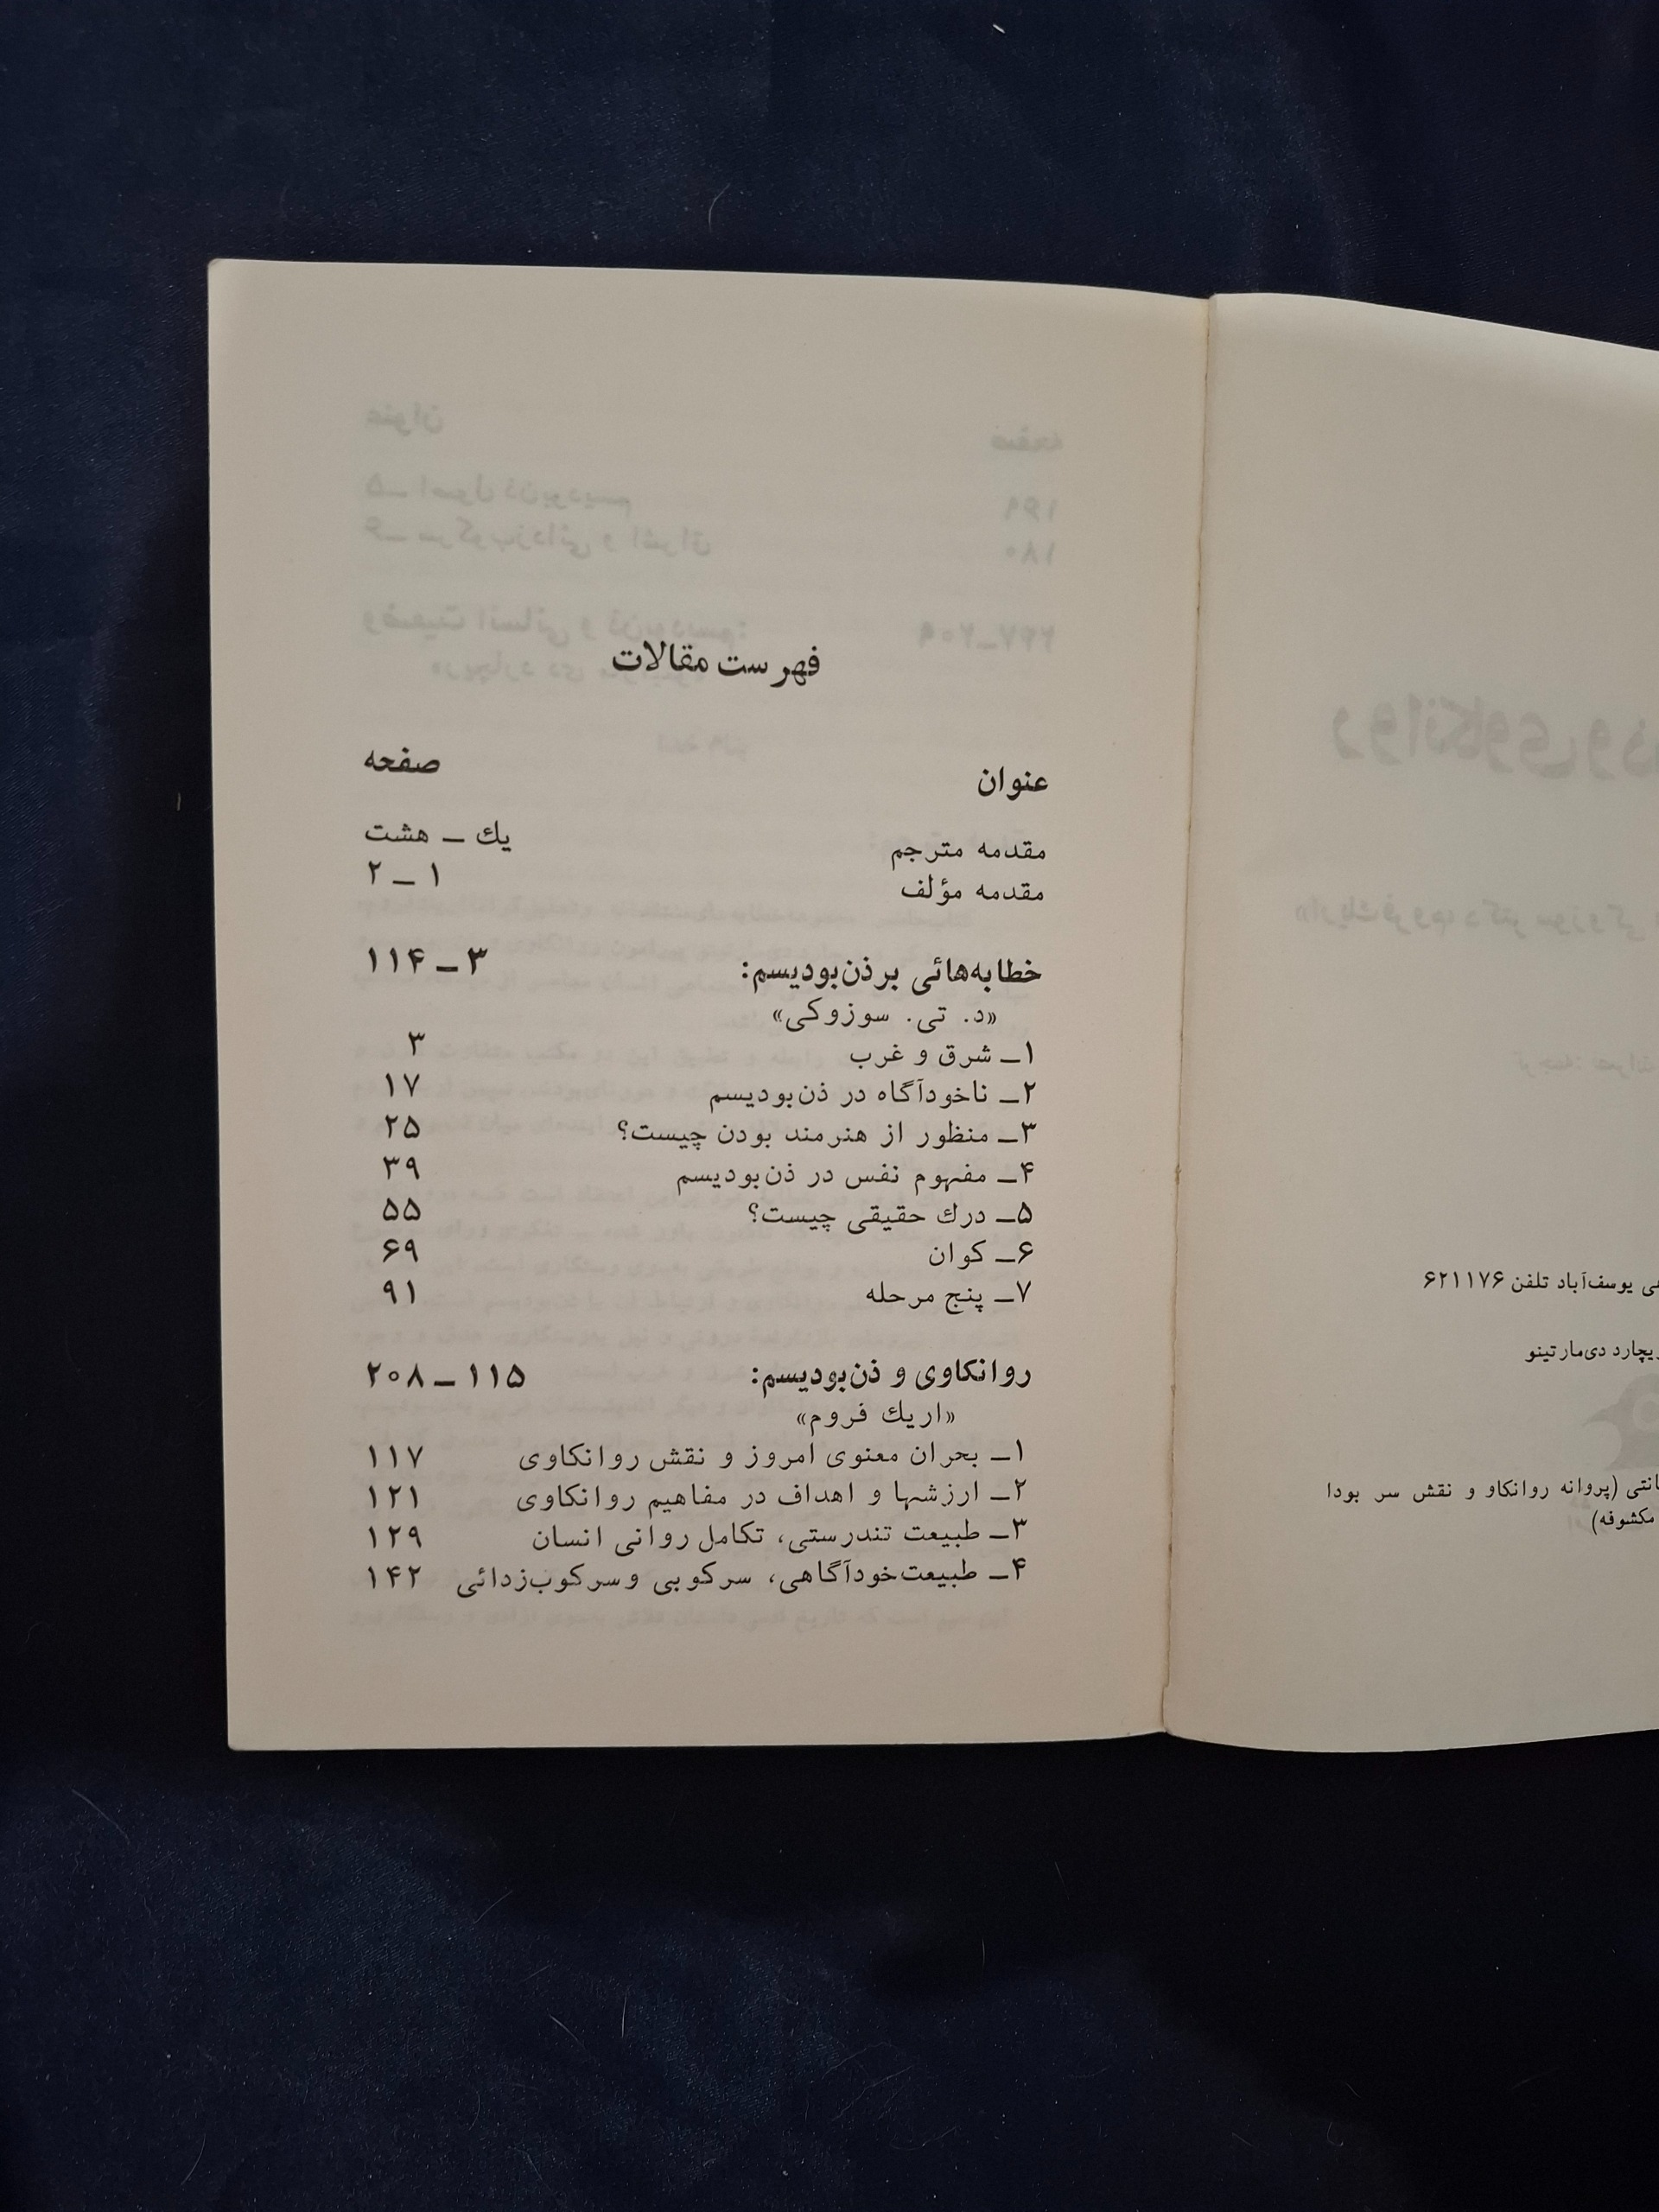 فهرست مقالات
عنوان صفحه
مقدمه مترجم يك ــ هشت
مقدمه مؤلف ۱ ــ ۲
خطابه‌هائی بر ذن‌بودیسم: ۳ ــ ۱۱۴
«د. تی. سوزوکی»
۱ــ شرق و غرب ۳
۲ــ ناخودآگاه در ذن‌بودیسم ۱۷
۳ــ منظور از هنرمند بودن چیست؟ ۲۵
۴ــ مفهوم نفس در ذن‌بودیسم ۳۹
۵ــ درك حقیقی چیست؟ ۵۵
۶ــ کوان ۶۹
۷ــ پنج مرحله ۹۱
روانکاوی و ذن‌بودیسم: ۱۱۵ ــ ۲۰۸
«اریك فروم»
۱ــ بحران معنوی امروز و نقش روانکاوی ۱۱۷
۲ــ ارزشها و اهداف در مفاهیم روانکاوی ۱۲۱
۳ــ طبیعت تندرستی، تکامل روانی انسان ۱۲۹
۴ــ طبیعت‌خودآگاهی، سرکوبی وسرکوب‌زدائی ۱۴۲
یوسف‌آباد تلفن ۶۲۱۱۷۶
دی‌مارتینو
(پروانه روانکاو و نقش سر بودا
مکشوفه)